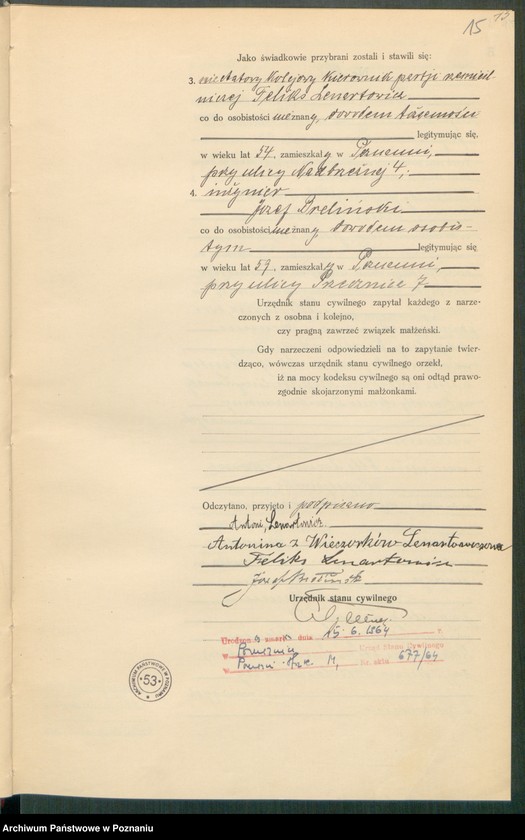 15
15.
Jako świadkowie przybrani zostali i stawili się:
3. kolejowy kierownik partji
Feliks Lenartowicz
co do osobistości nieznany, dowodem tożsamości
legitymując się,
w wieku lat 54, zamieszkały w Poznaniu,
przy ulicy Nadbrzeżnej 4,
4. inżynier
Józef Breliński
co do osobistości nieznany dowodem osobis-
tym legitymując się
w wieku lat 59, zamieszkały w Poznaniu,
przy ulicy 7
Urzędnik stanu cywilnego zapytał każdego z narze-
czonych z osobna i kolejno,
czy pragną zawrzeć związek małżeński.
Gdy narzeczeni odpowiedzieli na to zapytanie twier-
dząco, wówczas urzędnik stanu cywilnego orzekł,
iż na mocy kodeksu cywilnego są oni odtąd prawo-
zgodnie skojarzonymi małżonkami.
Odczytano, przyjęto i podpisano
Antoni Lenartowicz
Antonina z Wieczorków Lenartowiczowa
Feliks Lenartowicz
Józef Breliński
Urzędnik stanu cywilnego
dnia 15. 6. 1964 r.
w Urząd Stanu Cywilnego
w Nr. aktu 677/64
ARCHIWUM PAŃSTWOWE W POZNANIU
53
Archiwum Państwowe w Poznaniu
szukajwarchiwach.gov.pl